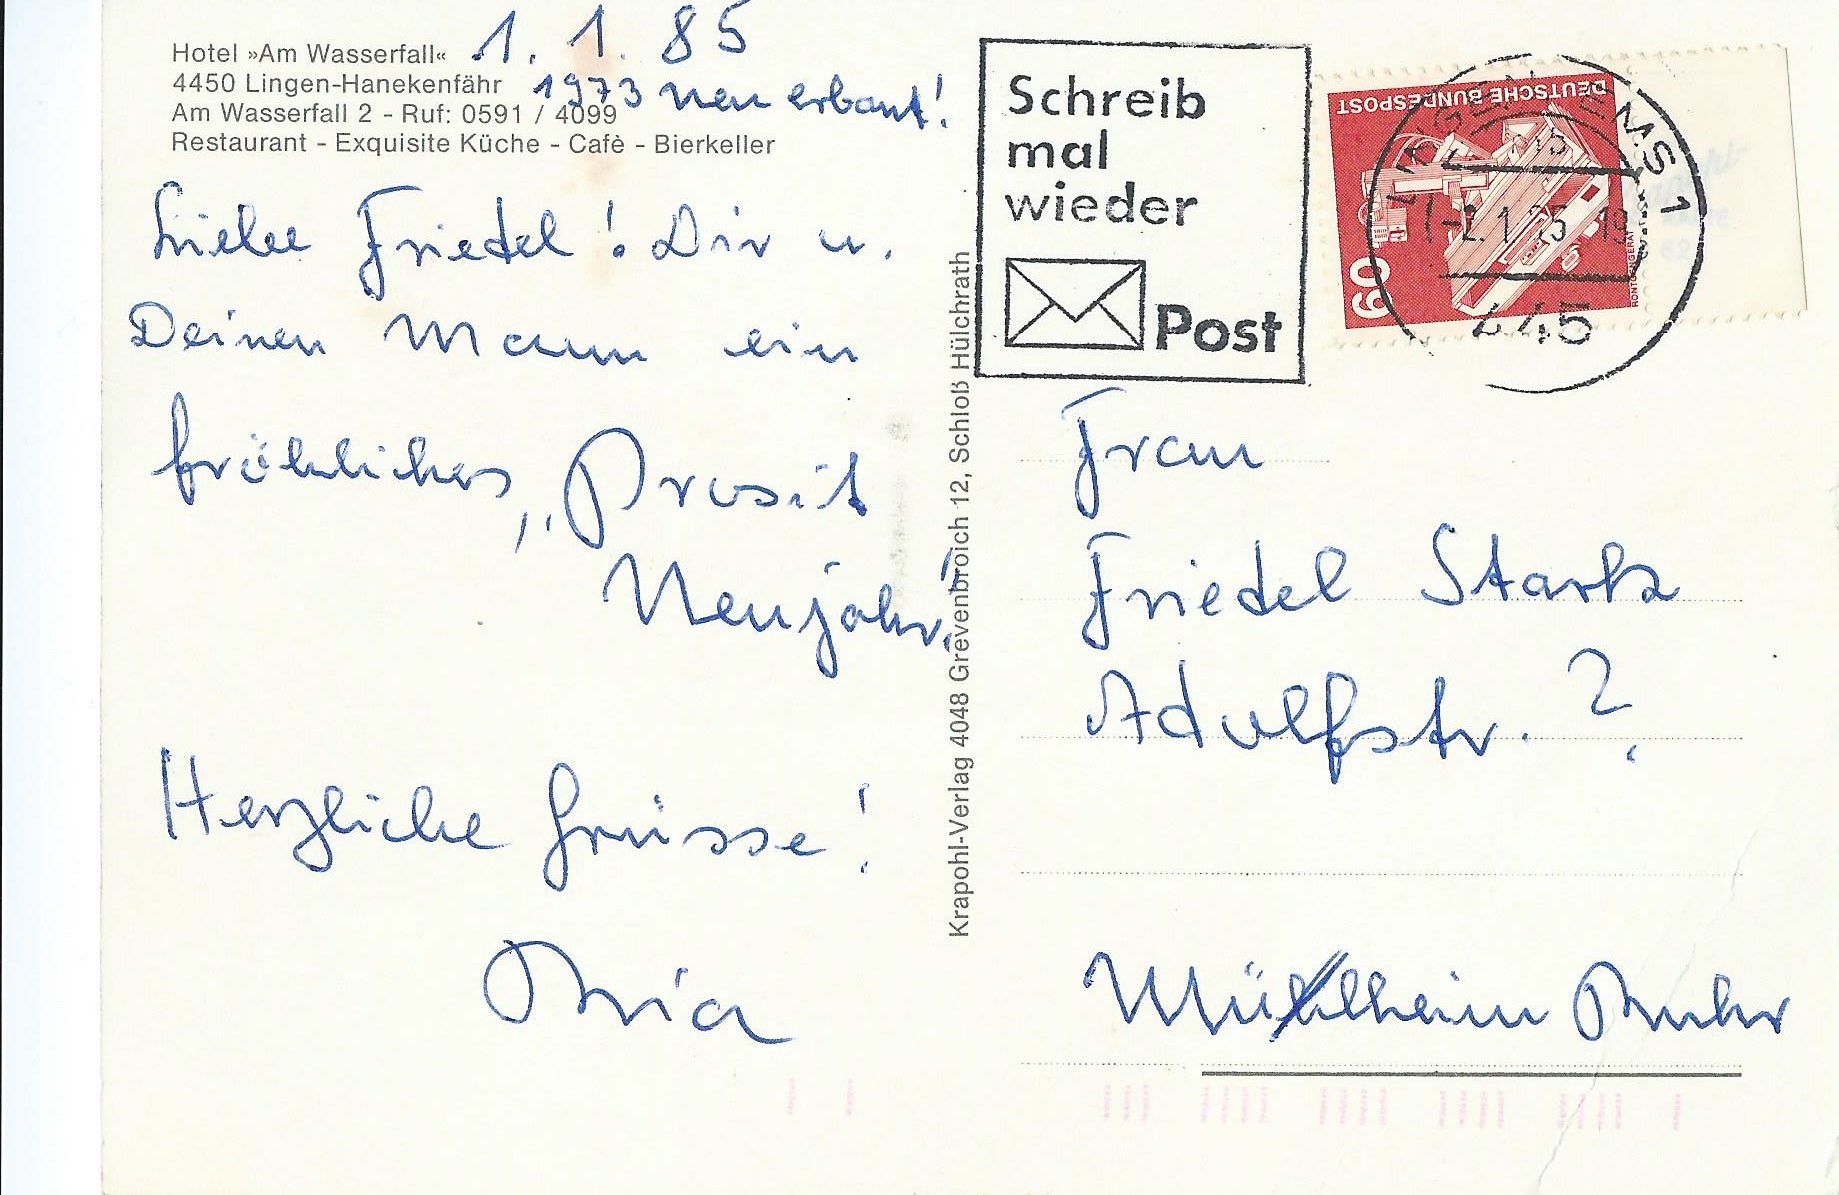 Hotel »Am Wasserfall«
4450 Lingen-Hanekenfähr
Am Wasserfall 2 - Ruf: 0591 / 4099
Restaurant - Exquisite Küche - Cafè - Bierkeller
1. 1. 85
1973 neu erbaut!
Liebe Friedel! Dir u.
Deinen Mann ein
fröhliches „Prosit
Neujahr!
Herzliche Grüsse!
Ria
Krapohl-Verlag 4048 Grevenbroich 12, Schloß Hülchrath
Schreib
mal
wieder
Post
DEUTSCHE BUNDESPOST
60
RÖNTGENGERÄT
LINGEN, EMS 1
-2.1.85-19
445
Frau
Friedel Stark
Adolfstr. ?
Mülheim Ruhr